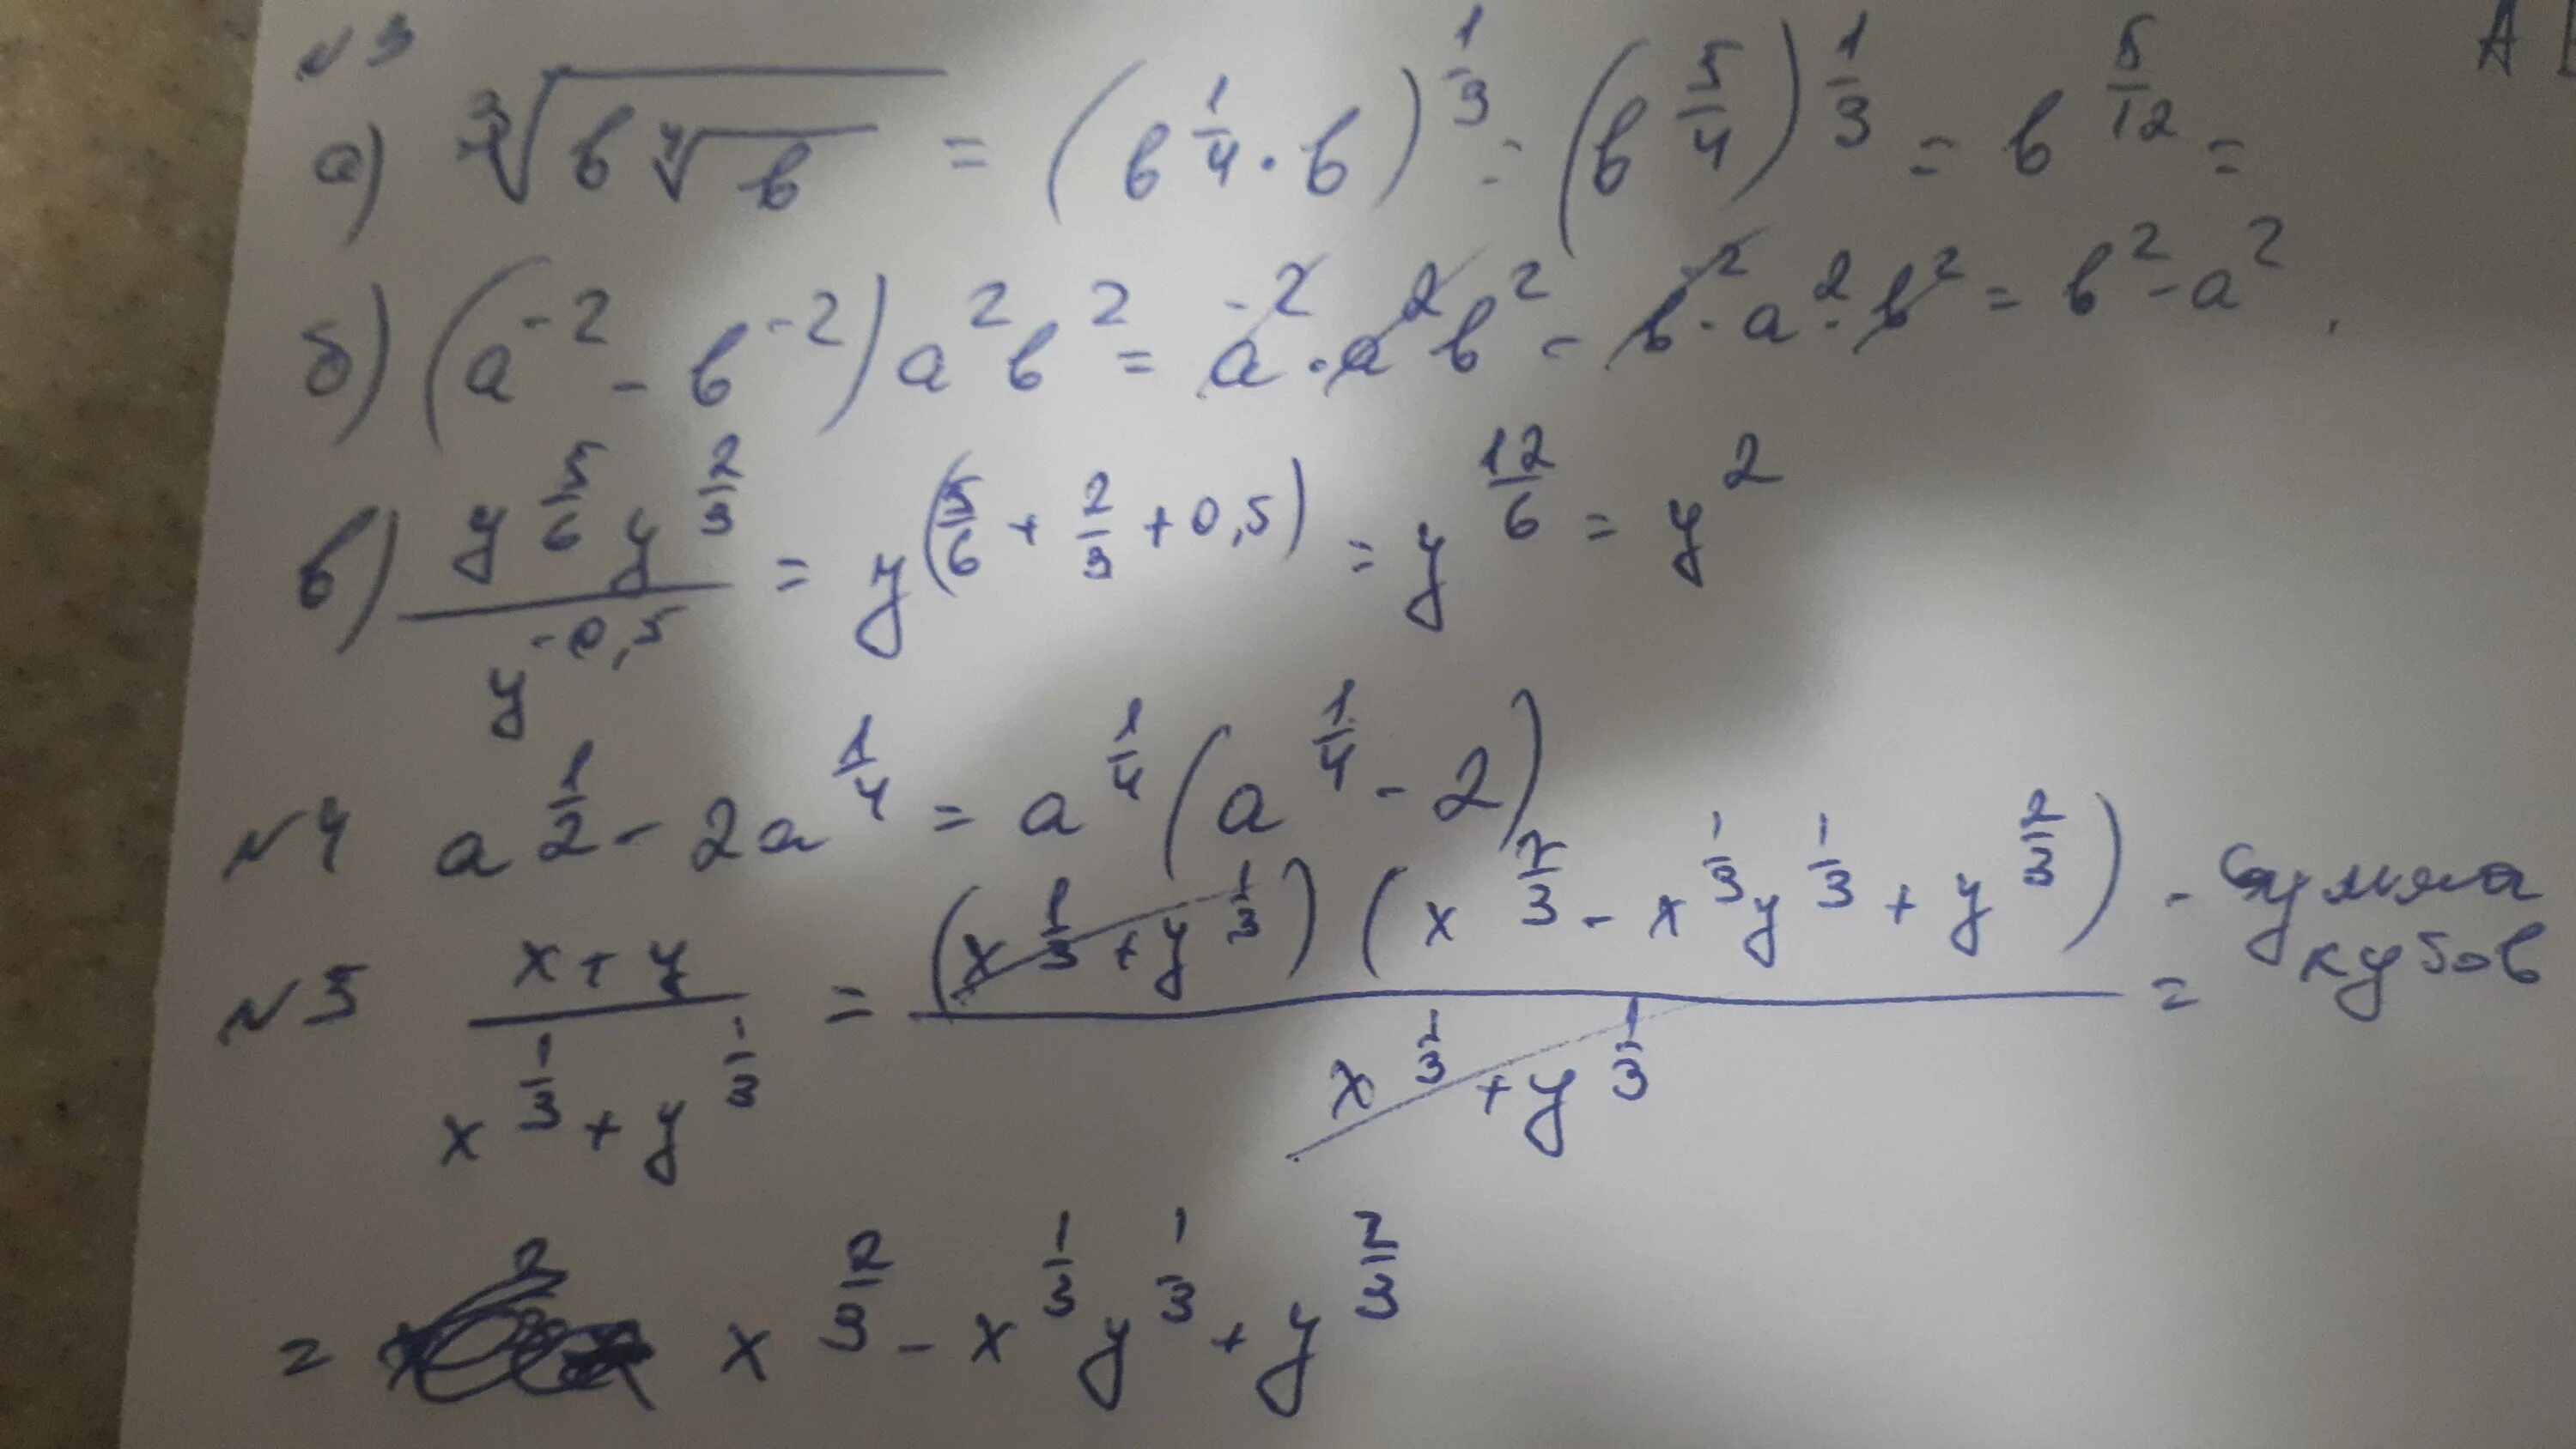 №3
а) ∛(b ∜b) = (b^(1/4) · b)^(1/3) = (b^(5/4))^(1/3) = b^(5/12) =
б) (a^(-2) - b^(-2)) a^2 b^2 = a^(-2) · a^2 b^2 - b^(-2) · a^2 · b^2 = b^2 - a^2.
в) (y^(5/6) y^(2/3))/(y^(-0,5)) = y^(5/6 + 2/3 + 0,5) = y^(12/6) = y^2
№4 a^(1/2) - 2a^(1/4) = a^(1/4) (a^(1/4) - 2)
№5 (x + y)/(x^(1/3) + y^(1/3)) = ((x^(1/3) + y^(1/3)) (x^(2/3) - x^(1/3) y^(1/3) + y^(2/3)))/(x^(1/3) + y^(1/3)) = - Сумма кубов
= x^(2/3) - x^(1/3) y^(1/3) + y^(2/3)